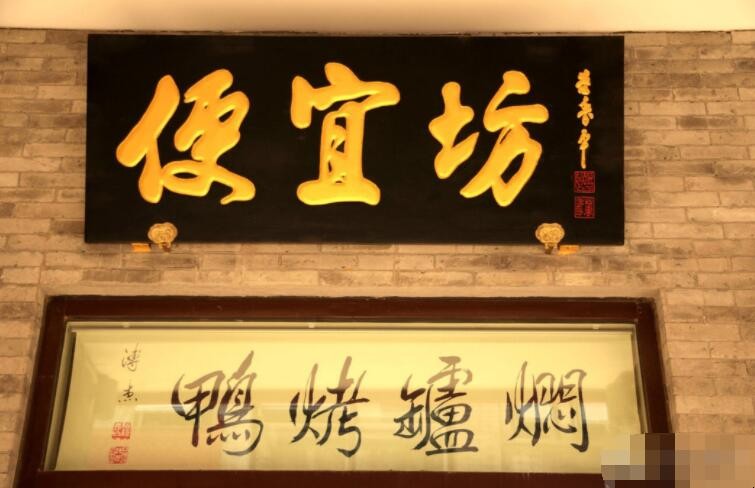 便宜坊
燜罏烤鴨
溥杰